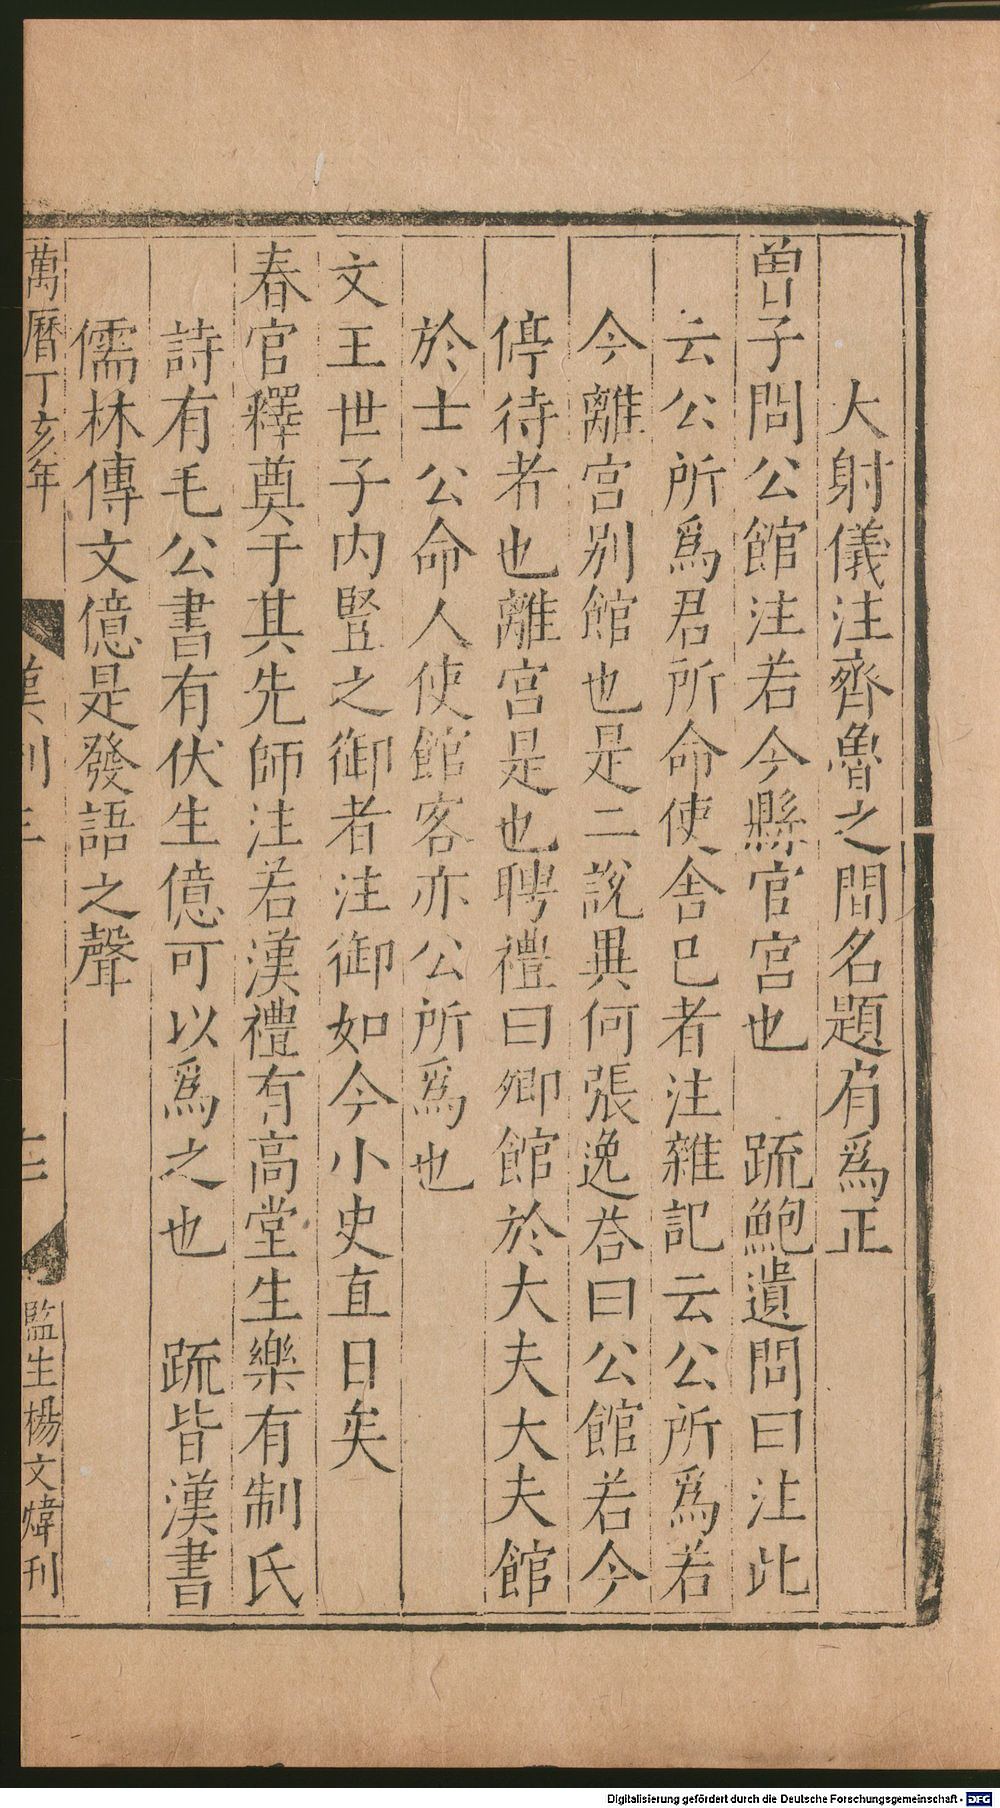 大射儀注齊魯之間名題肩爲正
曽子問公館注若今縣官宫也　䟽鮑遺問曰注此
云公所爲君所命使舍巳者注雜記云公所爲若
今離宫别館也是二說異何張逸荅曰公館若今
停待者也離宫是也聘禮曰卿館於大夫大夫館
於士公命人使館客亦公所爲也
文王世子内豎之御者注御如今小史直日矣
春官釋奠于其先師注若漢禮有高堂生樂有制氏
詩有毛公書有伏生億可以爲之也　䟽皆漢書
儒林傳文億是發語之聲
萬曆丁亥年
漢制三
監生楊文煒刊
Digitalisierung gefördert durch die Deutsche Forschungsgemeinschaft - DFG